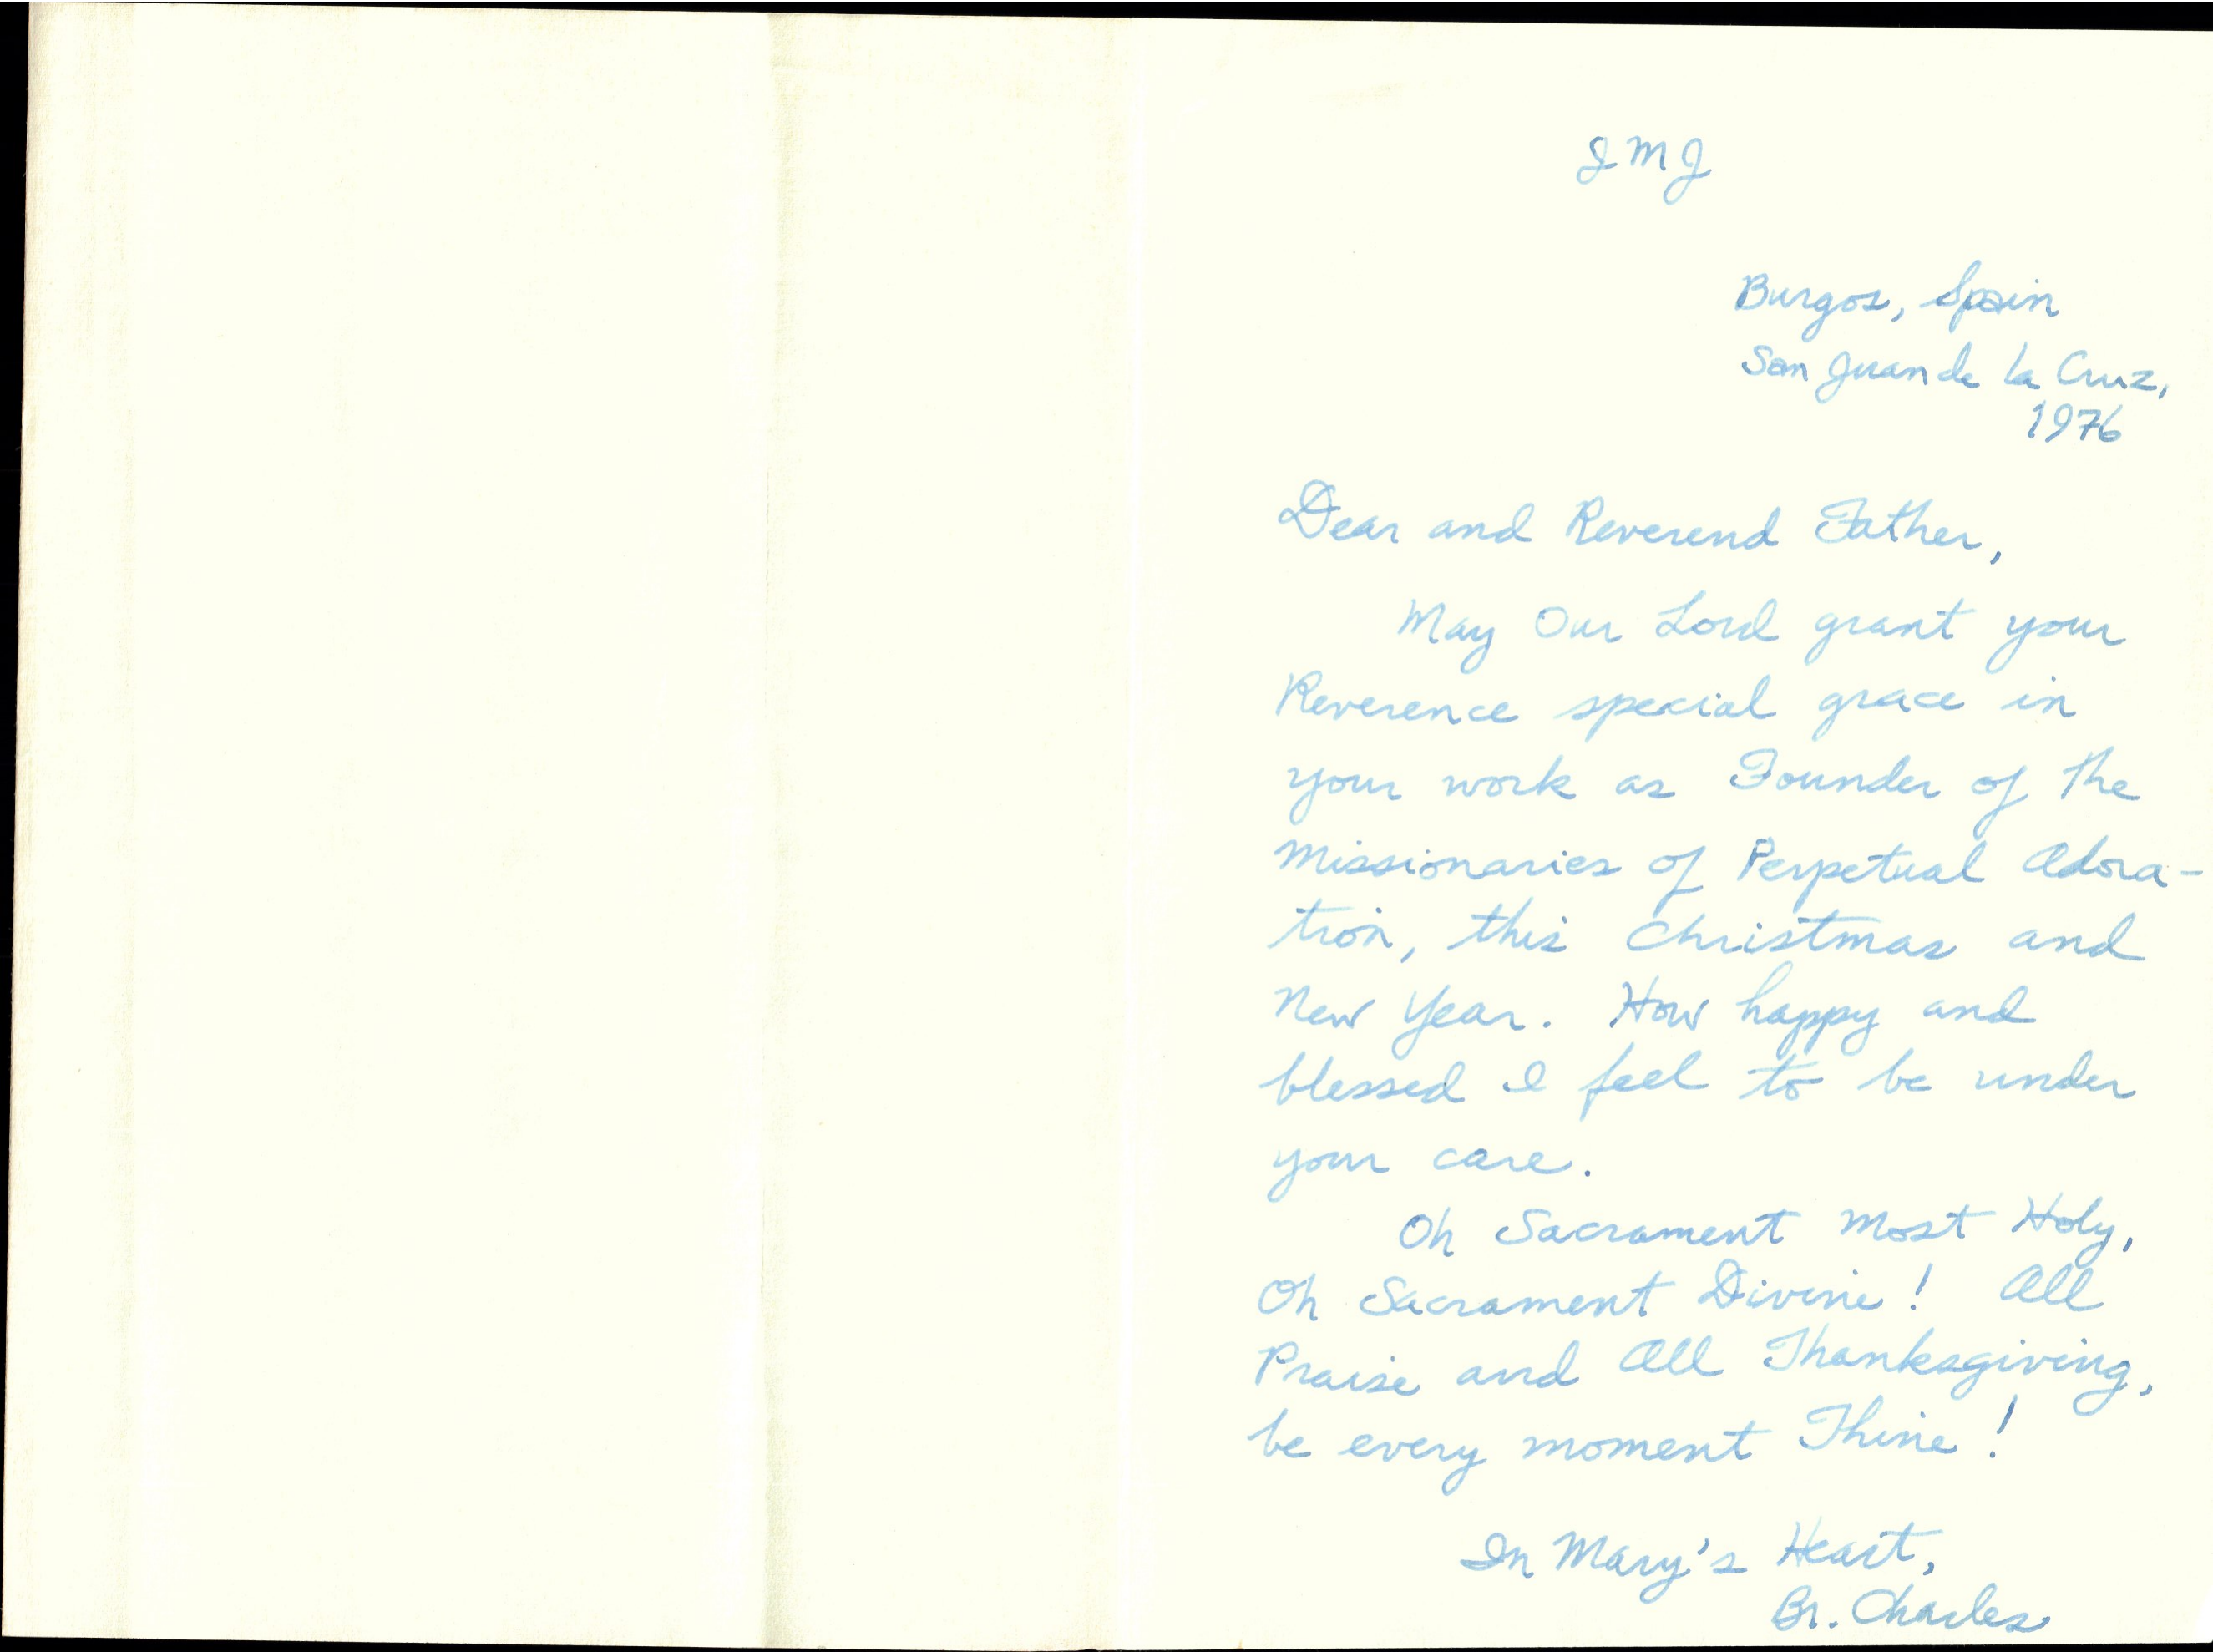 JMJ
Burgos, Spain
San Juan de la Cruz,
1976
Dear and Reverend Father,
May Our Lord grant your
Reverence special grace in
your work as Founder of the
Missionaries of Perpetual Adora-
tion, this Christmas and
New Year. How happy and
blessed I feel to be under
your care.
Oh Sacrament Most Holy,
Oh Sacrament Divine! All
Praise and All Thanksgiving,
be every moment Thine!
In Mary's Heart,
Br. Charles